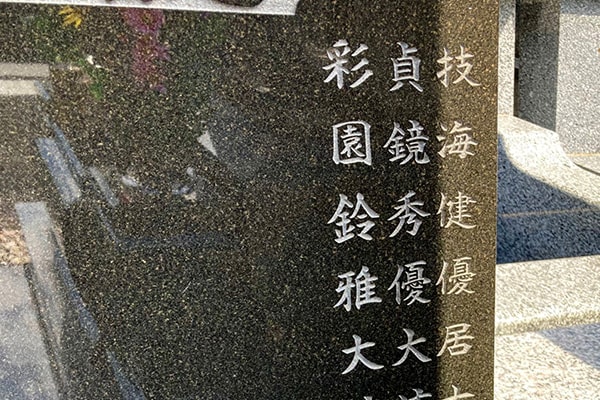 技海健優居
貞鏡秀優大
彩園鈴雅大